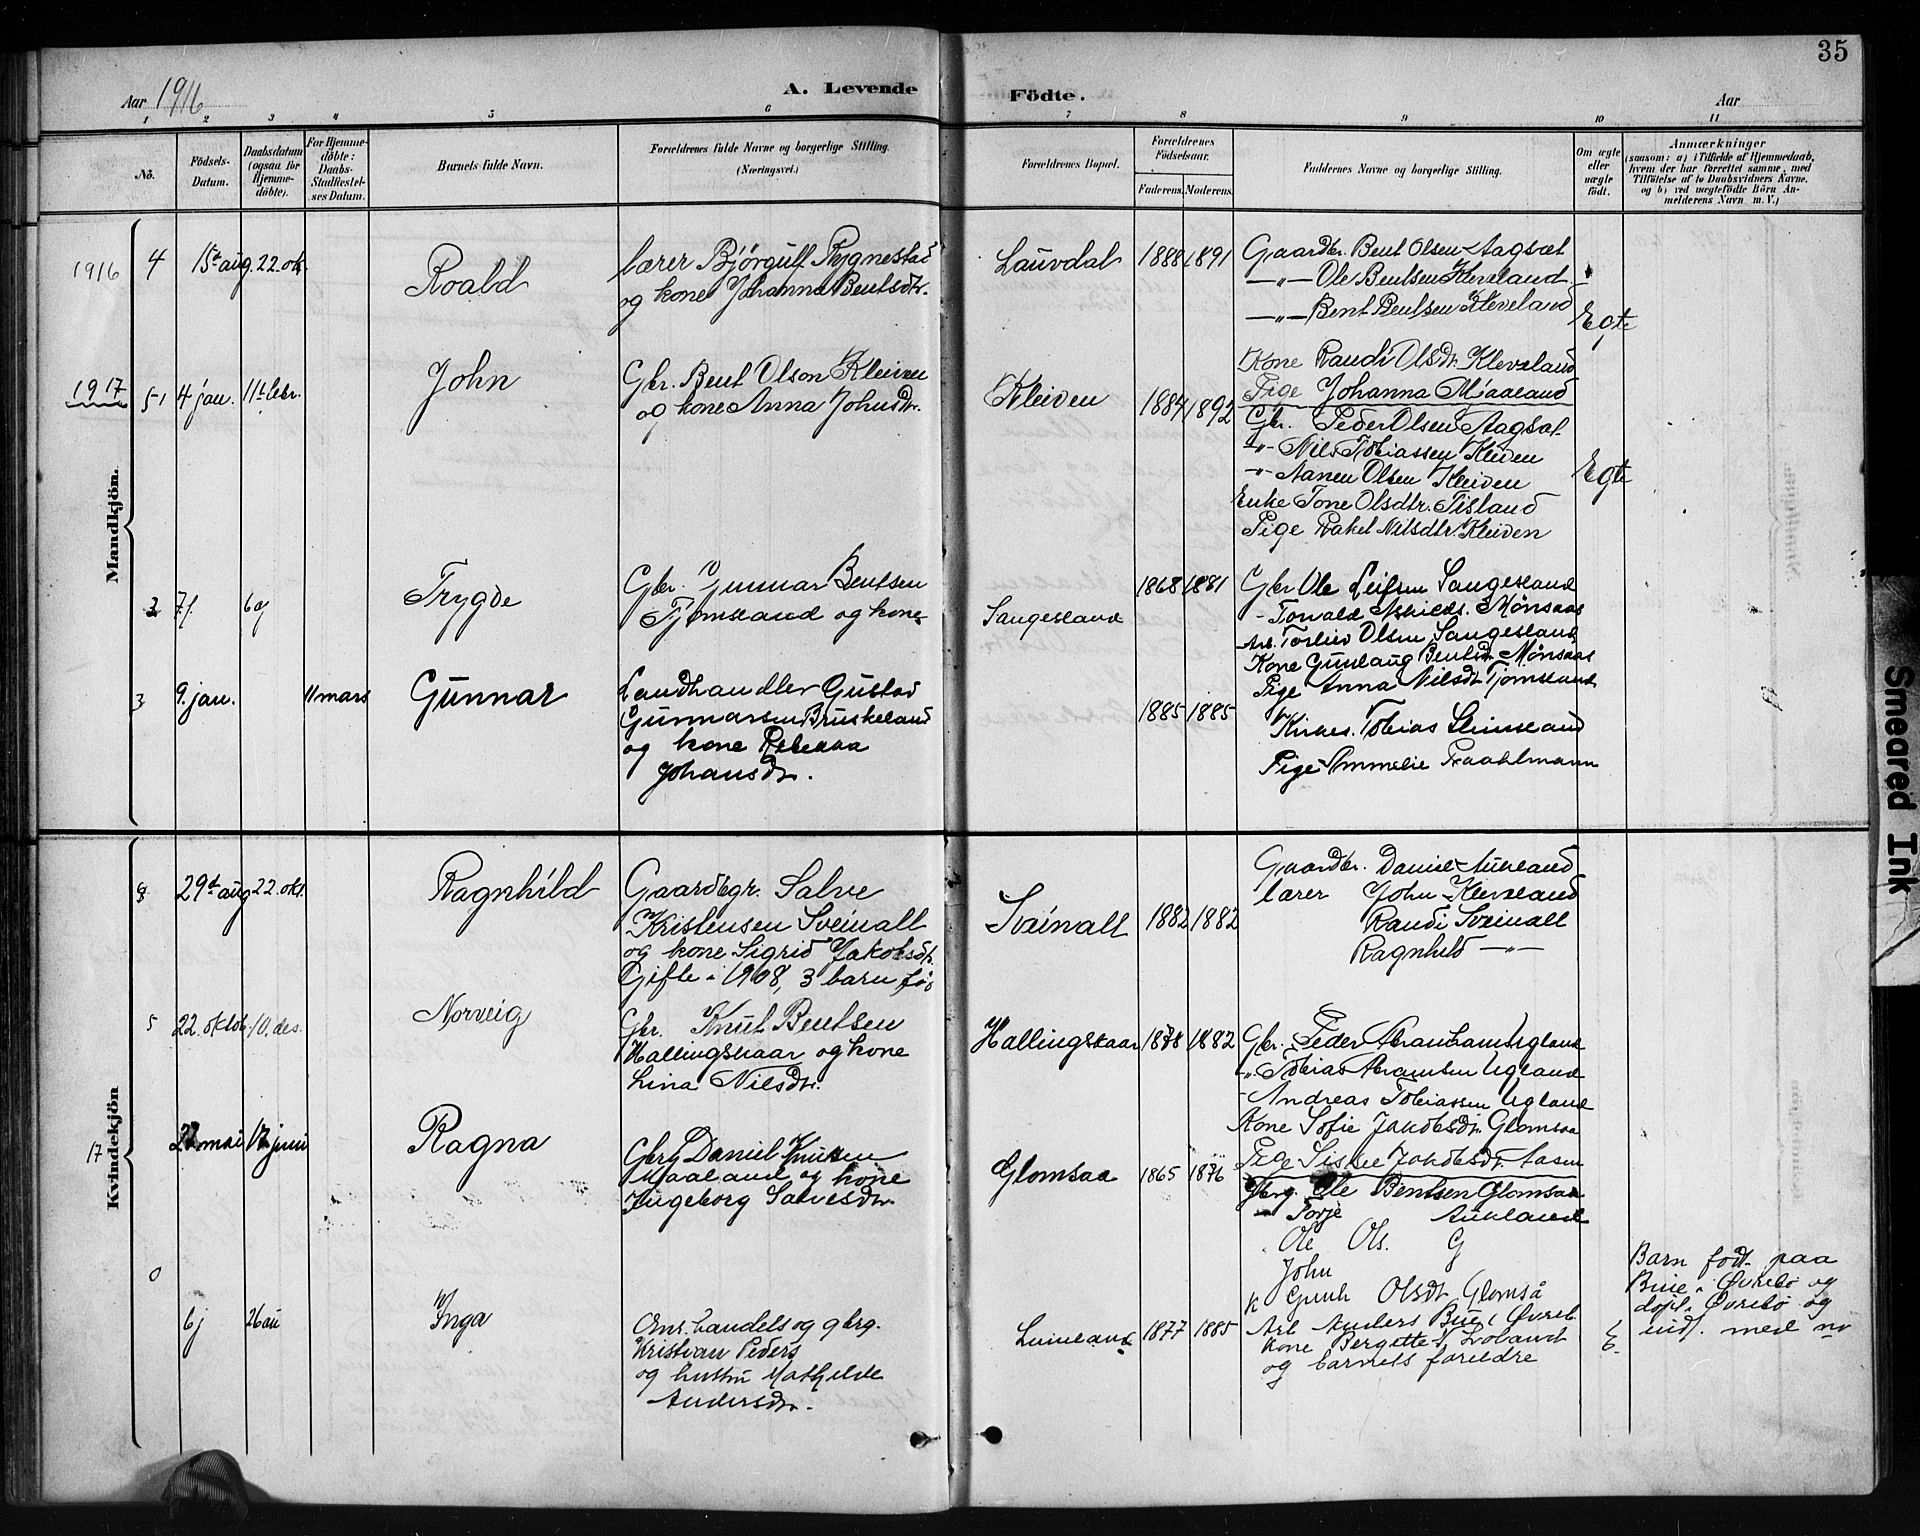 35
Aar 1916
A. Levende Födte.
Aar
1 2 3 4 5 6 7 8 9 10 11
No.
Födsels-Datum.
Daabsdatum (ogsaa for Hjemmedöbte).
For Hjemmedöbte: Daabs-Stadfæstelses Datum.
Barnets fulde Navn.
Forældrenes fulde Navne og borgerlige Stilling.
(Næringsvei.)
Forældrenes Bopæl.
Forældrenes Födselsaar.
Faderens. Moderens.
Faddernes Navne og borgerlige Stilling.
Om ægte eller uægte födt.
Anmærkninger
(saasom: a) i Tilfælde af Hjemmedaab, hvem der har forrettet samme, med Tilföielse af to Daabsvidners Navne. og b) ved uægtefödte Börn Anmelderens Navn m. V.)
Mandkjön.
1916 4 15de aug. 22. okt.
Roald
Lærer Bjørgulf Rygnestad
og kone Johanna Bentsdtr.
Lauvdal 1888 1891
Gaardbr. Bent Olsen Aagsæt
—"— Ole Bentsen Kleveland
—"— Bent Bentsen Kleveland
Kone Randi Olsdtr Kleveland
Pige Johanna Maaeland
Egte
1917 5 4 jan. 11te febr.
John
Gbr. Bent Olson Kleiven
og kone Anna Johnsdtr.
Kleiven 1884 1892
Gbr. Peder Olsen Aagsæt
-"- Nils Tobiassen Kleiven
-"- Aanen Olsen Kleiven
Enke Tone Olsdtr. Tisland
Pige Rakel Nilsdtr. Kleiven
Egte
Trygve
Gbr. Gunnar Bentsen
Tjomsland og kone
Sangesland 1868 1881
Gbr Ole Leifsen Sangesland
Mønsaas
Arb. Torleiv Olsen Sangesland
Kone Gunlaug Bentsdtr Mønsaas
Pige Anna Nilsdtr Tjomsland
3 9. jan. 11 mars
Gunnar
Landhandler Gustav
Gunnarsen Bruskeland
og kone Rebekka
Johansdtr.
1885 1885
Kirkes. Tobias Steinsland
Pige Emmelie
Kvindekjön
8 29de aug 22. okt.
Ragnhild
Gaardbgr. Salve
Kristensen Sveinall
og kone Sigrid Jakobsdtr.
Gifte i 1908, 3 barn før
Sveinall 1882 1882
Gaardbr. Daniel Aukland
Lærer John Kleveland
Randi Sveinall
Ragnhild —"—
5 22. oktob. 10. des.
Norveig
Gbr. Knut Bentsen
Hallingskaar og kone
Lina Nilsdtr.
Hallingskaar 1878 1882
Gbr. Peder Abrahams Ugland
-"- Tobias Abramsen Ugland
- Andreas Tobiassen Ugland
Kone Sofie Jakobsdtr. Glomsaa
Pige Siskee Jakobsdtr. Aasen
17 mai 17 juni
Ragna
Gbrg Daniel Knutsen
Maaland og kone
Ingeborg Salvesdtr.
Glomsaa 1865 1876
Gbrg. Ole Bentsen Glomsaa
— Torje Aukland
Ole Ols. G
John
K Gunh Olsdtr Glomså
0 6 j 26 au
Inga
handels og gbrg.
Kristian Peders
og hustru Mathilde
Andersdtr.
1877 1885
Arb Anders Bue i Øvreb
Kone Bergette
og barnets foreldre
E.
Barn født paa
Bue i Øvrebø og
døpt i Øvrebø og
indf. med no
Smeared Ink